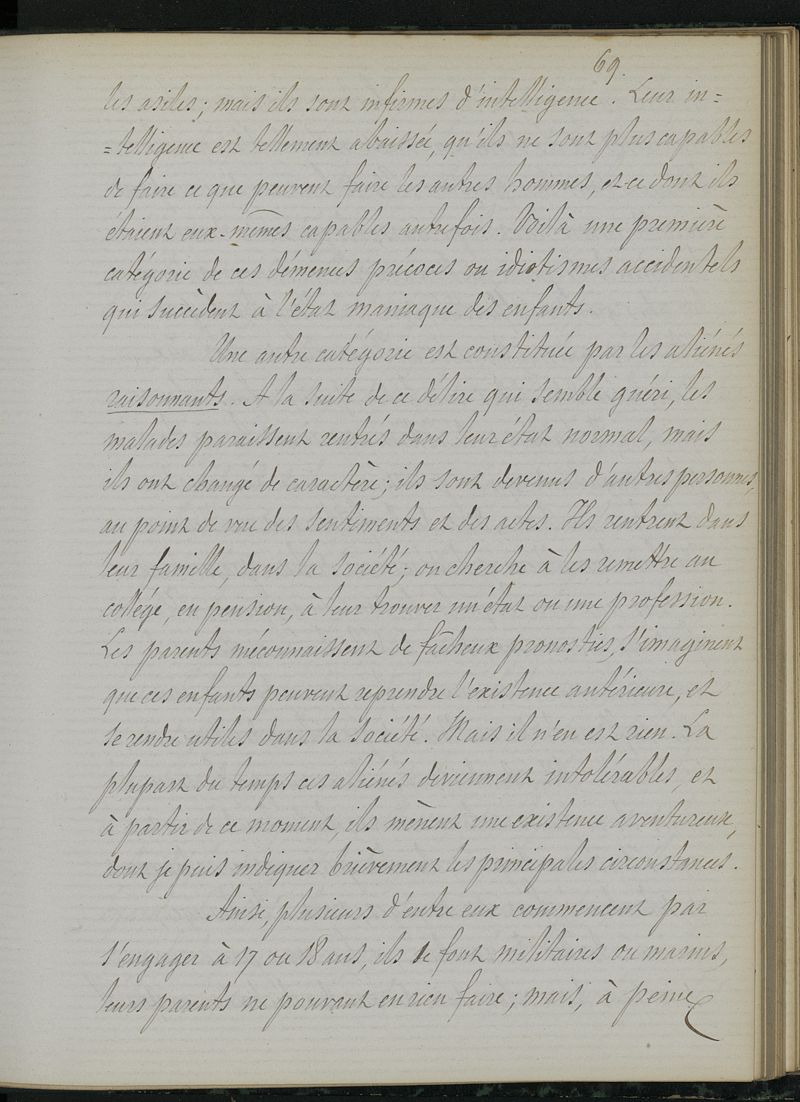 69.
les asiles; mais ils sont infirmes d'intelligence. Leur in=
=telligence est tellement abaissée, qu'ils ne sont plus capables
de faire ce que peuvent faire les autres hommes, et ce dont ils
étaient eux-mêmes capables autrefois. Voilà une première
catégorie de ces démences précoces ou idiotismes accidentels
qui succèdent à l'état maniaque des enfants.
Une autre catégorie est constituée par les aliénés
raisonnants. A la suite de ce délire qui semble guéri, les
malades paraissent rentrés dans leur état normal, mais
ils ont changé de caractère; ils sont devenus d'autres personnes,
au point de vue des sentiments et des actes. Ils rentrent dans
leur famille, dans la société; on cherche à les remettre au
collége, en pension, à leur trouver un état ou une profession.
Les parents méconnaissent de fâcheux pronostics, s'imaginent
que ces enfants peuvent reprendre l'existence antérieure, et
se rendre utiles dans la société. Mais il n'en est rien. La
plupart du temps ces aliénés deviennent intolérables, et
à partir de ce moment, ils mènent une existence aventureuse,
dont je puis indiquer brièvement les principales circonstances.
Ainsi, plusieurs d'entre eux commencent par
s'engager à 17 ou 18 ans, ils se font militaires ou marins,
leurs parents ne pouvant en rien faire; mais, à peine